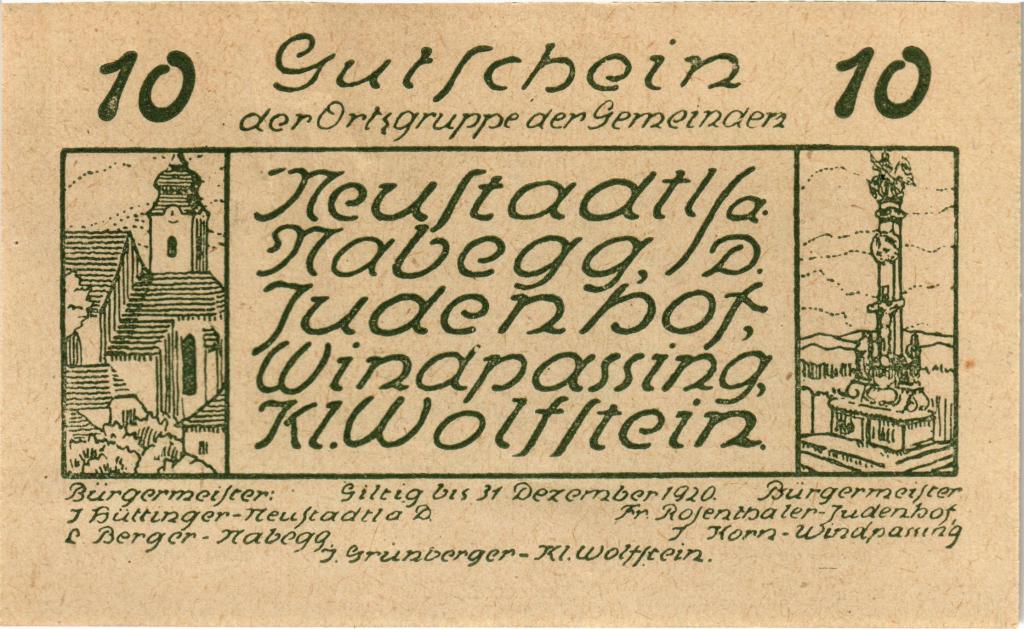 10 Gutſchein 10
der Ortsgruppe der Gemeinden
Neuſtadtl/a.
Nabegg, /D.
Judenhof,
Windpassing,
Kl. Wolfſtein.
Bürgermeiſter: Giltig bis 31 Dezember 1920. Bürgermeiſter
J Hüttinger-Neuſtadtl a D. Fr. Roſenthaler-Judenhof
L Berger - Nabegg J. Korn - Windpassing
J. Grünberger - Kl. Wolfſtein.